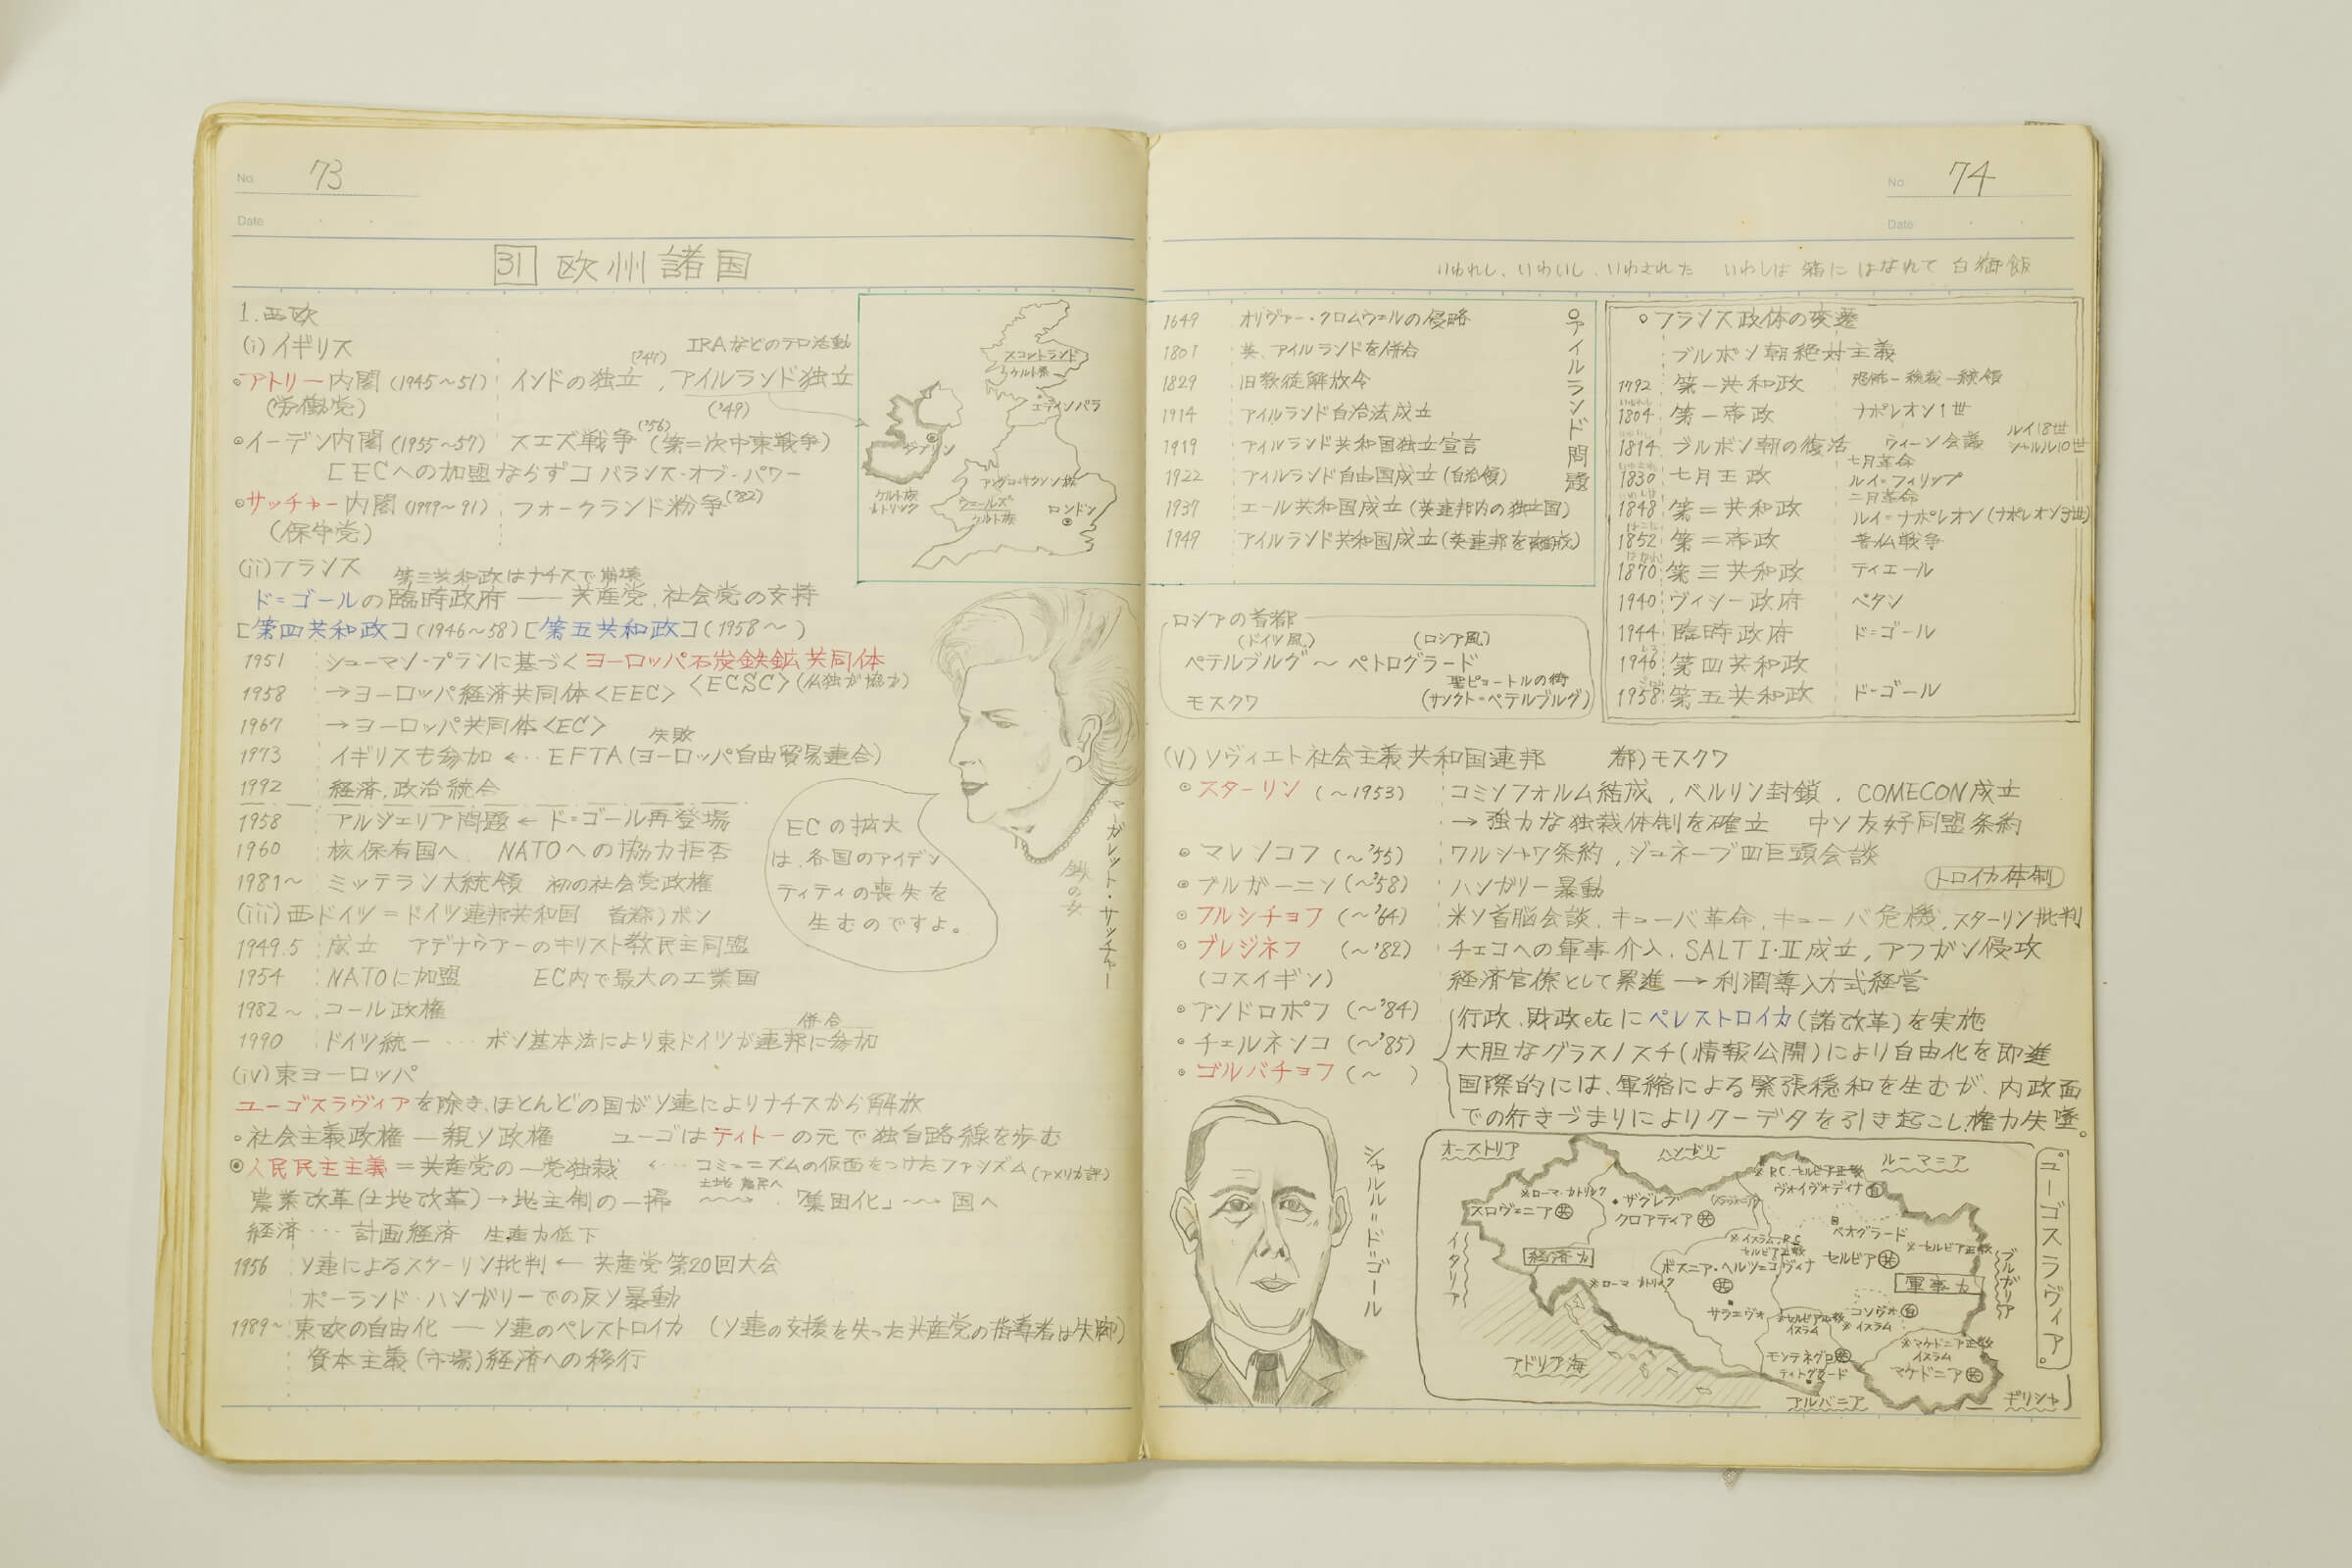 No. 73
Date
31 欧州諸国
1. 西欧
(i) イギリス
IRAなどのテロ活動
◦アトリー内閣 (1945~51) インドの独立('47), アイルランド独立('49)
(労働党)
◦イーデン内閣 (1955~57) スエズ戦争('56) (第二次中東戦争)
[ECへの加盟ならず] バランス・オブ・パワー
◦サッチャー内閣 (1979~91) フォークランド紛争('82)
(保守党)
スコットランド
ケルト系
エディンバラ
ダブリン
アングロ=サクソン族
ケルト族
カトリック
ウェールズ
ケルト族
ロンドン
(ii) フランス
第三共和政はナチスで崩壊
ド=ゴールの臨時政府 ── 共産党, 社会党の支持
[第四共和政] (1946~58) [第五共和政] (1958~ )
1951 シューマン・プランに基づくヨーロッパ石炭鉄鉱共同体
<ECSC> (仏独が協力)
1958 →ヨーロッパ経済共同体<EEC>
1967 →ヨーロッパ共同体<EC>
失敗
1973 イギリスも参加 ←‥ EFTA (ヨーロッパ自由貿易連合)
1992 経済, 政治統合
1958 アルジェリア問題 ← ド=ゴール再登場
1960 核保有国へ NATOへの協力拒否
1981~ ミッテラン大統領 初の社会党政権
ECの拡大
は、各国のアイデン
ティティの喪失を
生むのですよ。
マーガレット・サッチャー
鉄の女
(iii) 西ドイツ=ドイツ連邦共和国 首都)ボン
1949.5 成立 アデナウアーのキリスト教民主同盟
1954 NATOに加盟 EC内で最大の工業国
1982~ コール政権
併合
1990 ドイツ統一 … ボン基本法により東ドイツが連邦に参加
(iv) 東ヨーロッパ
ユーゴスラヴィアを除き、ほとんどの国がソ連によりナチスから解放
◦社会主義政権 ─ 親ソ政権 ユーゴはティトーの元で独自路線を歩む
◉人民民主主義=共産党の一党独裁 ←‥‥ コミュニズムの仮面をつけたファシズム (アメリカ評)
土地 農民へ
農業改革(土地改革)→地主制の一掃 「集団化」 国へ
経済… 計画経済 生産力低下
1956 ソ連によるスターリン批判 ← 共産党第20回大会
ポーランド・ハンガリーでの反ソ暴動
1989~ 東欧の自由化 ── ソ連のペレストロイカ (ソ連の支援を失った共産党の指導者は失脚)
資本主義(市場)経済への移行
No. 74
Date
いわれし、いわいし、いわされた いわしは 箱に はなれて 白御飯
1649 オリヴァー・クロムウェルの侵略
1801 英、アイルランドを併合
1829 旧教徒解放令
1914 アイルランド自治法成立
1919 アイルランド共和国独立宣言
1922 アイルランド自由国成立(自治領)
1937 エール共和国成立(英連邦内の独立国)
1949 アイルランド共和国成立(英連邦を離脱)
○アイルランド問題
○フランス政体の変遷
ブルボン朝絶対主義
1792 第一共和政 恐怖─総裁─統領
1804 第一帝政 ナポレオン1世
1814 ブルボン朝の復活 ウィーン会議 ルイ18世 シャルル10世
1830 七月王政 七月革命 ルイ=フィリップ
1848 第二共和政 二月革命 ルイ=ナポレオン(ナポレオン3世)
1852 第二帝政 普仏戦争
1870 第三共和政 ティエール
1940 ヴィシー政府 ペタン
1944 臨時政府 ド=ゴール
1946 第四共和政
1958 第五共和政 ド=ゴール
ロシアの首都
(ドイツ風) (ロシア風)
ペテルブルグ ~ ペトログラード
聖ピョートルの街
モスクワ (サンクト=ペテルブルグ)
(V) ソヴィエト社会主義共和国連邦 都)モスクワ
◦スターリン (~1953) コミンフォルム結成, ベルリン封鎖, COMECON成立
→強力な独裁体制を確立 中ソ友好同盟条約
◦マレンコフ (~'55) ワルシャワ条約, ジュネーブ四巨頭会談
◦ブルガーニン (~'58) ハンガリー暴動
トロイカ体制
◦フルシチョフ (~'64) 米ソ首脳会談, キューバ革命, キューバ危機, スターリン批判
◦ブレジネフ (~'82) チェコへの軍事介入, SALT I・II成立, アフガン侵攻
(コスイギン) 経済官僚として累進→利潤導入方式経営
◦アンドロポフ (~'84) 行政、財政etcにペレストロイカ(諸改革)を実施
◦チェルネンコ (~'85) 大胆なグラスノスチ(情報公開)により自由化を即進
◦ゴルバチョフ (~ ) 国際的には、軍縮による緊張穏和を生むが、内政面
での行きづまりによりクーデタを引き起こし、権力失墜。
シャルル=ド=ゴール
ユーゴスラヴィア。
オーストリア
ハンガリー
ルーマニア
※R.C. セルビア正教
ヴォイヴォディナ自
※ローマ・カトリック
スロヴェニア共
ザグレブ
クロアティア共
ベオグラード
※セルビア正教
セルビア共
※イスラム, R.C.
セルビア正教
ボスニア・ヘルツェゴヴィナ
共
イタリア
経済力
※ローマ・カトリック
軍事力
ブルガリア
サラエヴォ
コソヴォ自
※イスラム
※セルビア正教
イスラム
モンテネグロ共
ティトグラード
※マケドニア正教
イスラム
マケドニア共
アドリア海
アルバニア
ギリシャ